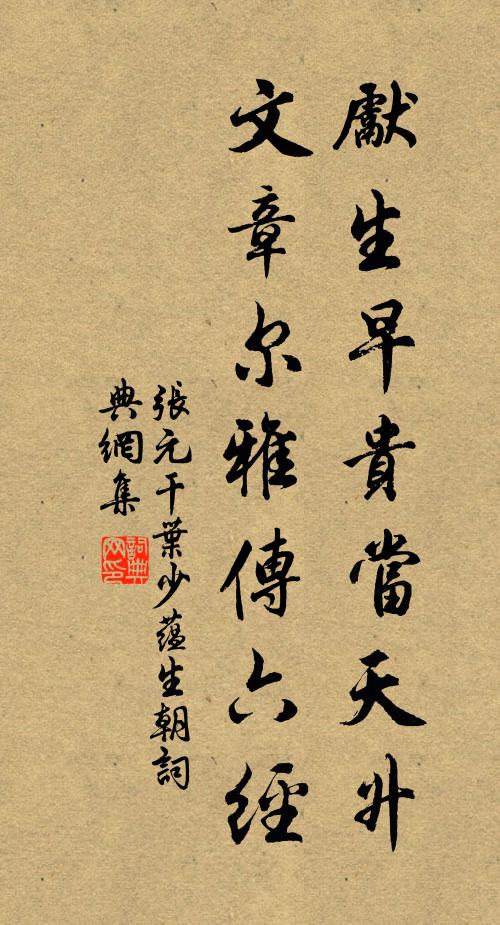 獻生早貴當天升
文章尔雅傳六經
張元干葉少蘊生朝詞
典網集
詞典
网印